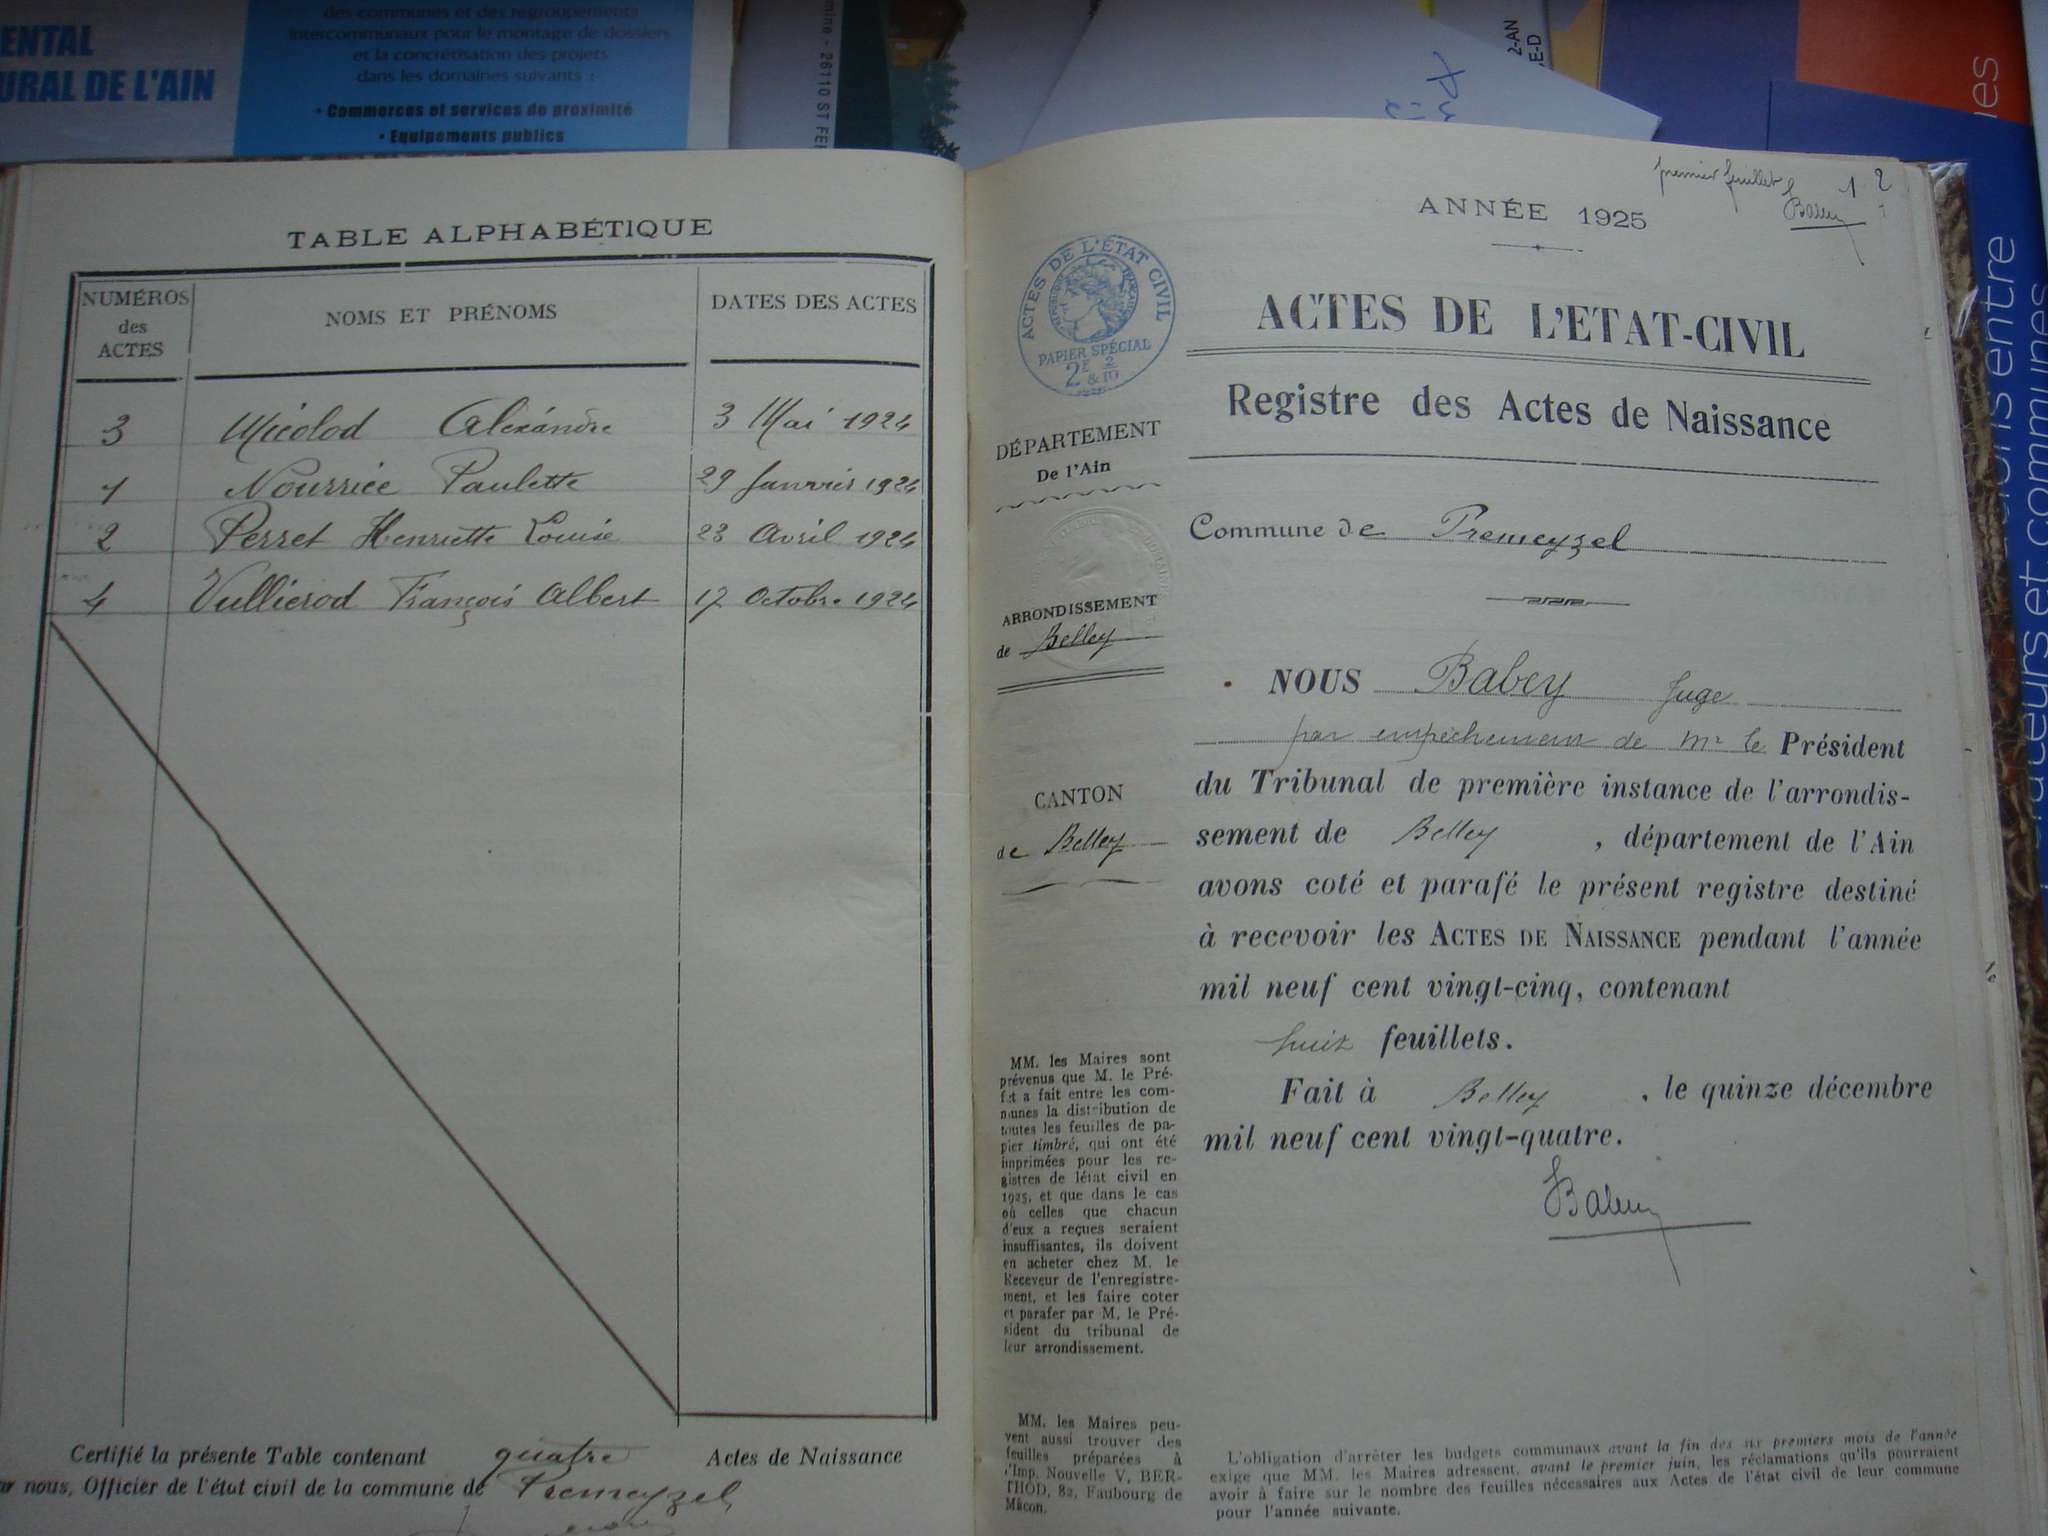 ENTAL
URAL DE L'AIN
des communes et des regroupements
intercommunaux pour le montage de dossiers
et la concrétisation des projets
dans les domaines suivants :
• Commerces et services de proximité
• Equipements publics
mine - 26110 ST FE
2-AN
E-D
TABLE ALPHABÉTIQUE
NUMÉROS des ACTES
NOMS ET PRÉNOMS
DATES DES ACTES
3 Micolod Alexandre 3 Mai 1924
1 Nourrice Paulette 29 Janvier 1924
2 Perret Henriette Louise 23 Avril 1924
4 Vullierod François Albert 17 Octobre 1924
Certifié la présente Table contenant quatre Actes de Naissance
ar nous, Officier de l'état civil de la commune de Premeyzel
premier feuillet 1 2
Babey
ANNÉE 1925
ACTES DE L'ÉTAT CIVIL
PAPIER SPÉCIAL
2F & 2/10
ACTES DE L'ETAT-CIVIL
Registre des Actes de Naissance
DÉPARTEMENT
De l'Ain
Commune de Premeyzel
ARRONDISSEMENT
de Belley
CANTON
de Belley
NOUS Babey Juge
par empêchement de Mr le Président
du Tribunal de première instance de l'arrondis-
sement de Belley , département de l'Ain
avons coté et parafé le présent registre destiné
à recevoir les ACTES DE NAISSANCE pendant l'année
mil neuf cent vingt-cinq, contenant
huit feuillets.
Fait à Belley , le quinze décembre
mil neuf cent vingt-quatre.
Babey
MM. les Maires sont
prévenus que M. le Pré-
fet a fait entre les com-
munes la distribution de
toutes les feuilles de pa-
pier timbré, qui ont été
imprimées pour les re-
gistres de létat civil en
1925, et que dans le cas
où celles que chacun
d'eux a reçues seraient
insuffisantes, ils doivent
en acheter chez M. le
Receveur de l'enregistre-
ment, et les faire coter
et parafer par M. le Pré-
sident du tribunal de
leur arrondissement.
MM. les Maires peu-
vent aussi trouver des
feuilles préparées à
l'Imp. Nouvelle V, BER-
THOD, 82, Faubourg de
Mâcon.
L'obligation d'arrêter les budgets communaux avant la fin des six premiers mois de l'année
exige que MM. les Maires adressent, avant le premier juin, les réclamations qu'ils pourraient
avoir à faire sur le nombre des feuilles nécessaires aux Actes de l'état civil de leur commune
pour l'année suivante.
ons entre
ateurs et communes